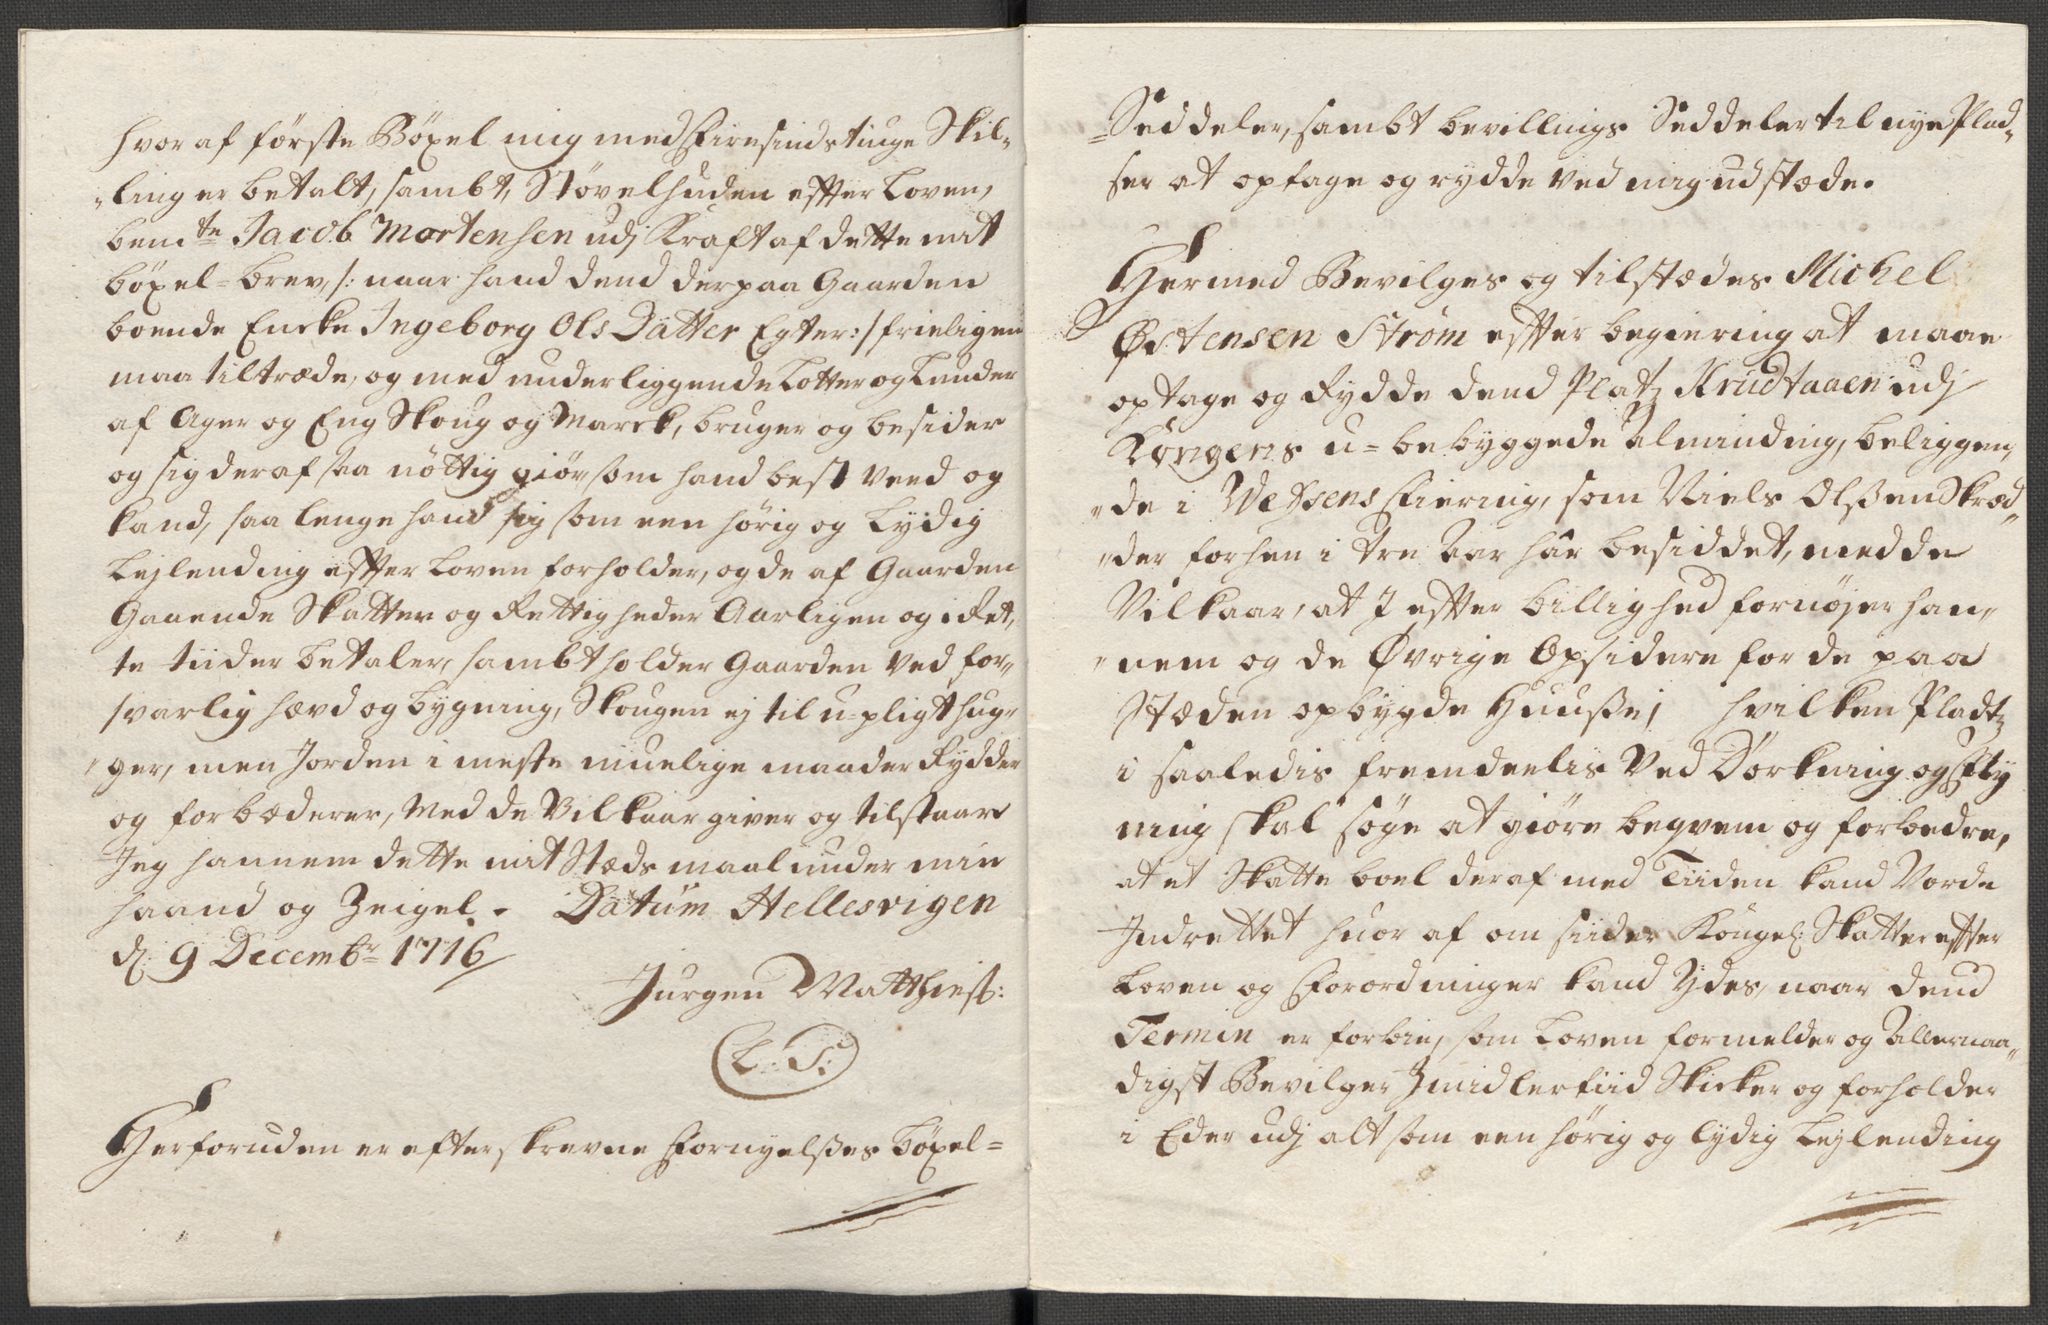 hvor af første Böxel mig med Firesindstiuge Skil-
„ling er betalt, sambt, Støvelhuden effter Loven,
bemte Jacob Mortensen udj Kraft af dette mit
böxel=brev, /: naar hand dend derpaa Gaarden
boende Encke Ingeborg Ols Datter Egter :/ frieligen
maa tiltræde, og med underliggende Lotter og Lunder
af Ager og Eng Skoug og Marck, bruger og besider
og sig deraf saa nöttig giör, som hand best veed og
kand, saa lenge hand sig som een hörig og Lydig
Lejlending effter Loven forholder, og de af Gaarden
Gaaende Skatter og Rettigheder Aarligen og i Ret,
te tiider betaler, sambt holder Gaarden ved for-
svarlig hævd og bygning, Skougen ej til u=pligt hug-
„ger, men Jorden i meste muelige maader Rydder
og forbæderer, Med de Vilkaar giver og tilstaar
Jeg hannem dette mit Stædsmaal under min
haand og Zeigel. Datum Hellesvigen
d: 9 Decembr 1716
Jurgen Matthiesß:
L: S:
Herforuden er efterskrevne Fornyelßes Böxel=
=Seddeler, sambt bevillings Seddeler til nye Plad-
ser at optage og rydde ved mig udstæde.
Hermed Bevilges og tilstædes Michel
Østensen Strøm effter begiering at maae
optage og Rydde dend Platz Krudtaaen udj
Kongens u=bebyggede Alminding, beliggen,
„de i Vefsens Fiering, som Niels Olßen Skræd-
„der forhen i tre Aar har besiddet, med de
Vilkaar, at I effter billighed fornøjer han,
„nem og de Øvrige Opsidere for de paa
Stæden opbygde Huuße, hvilken Pladtz
i saaledis fremdeelis Ved Dörkning og Flÿ
ning skal søge at giöre beqvem og forbedre,
at et Skatte boel deraf med Tiiden kand Vorde
Indrettet huor af om siider Kongel: Skatter effter
Loven og Forordninger kand Ydes, naar dend
Termin er forbie, som Loven formelder og Allernaa-
digst Bevilger Imidlertiid Skicker og forholder
i Eder udj alt som een hörig og lydig Lejlending